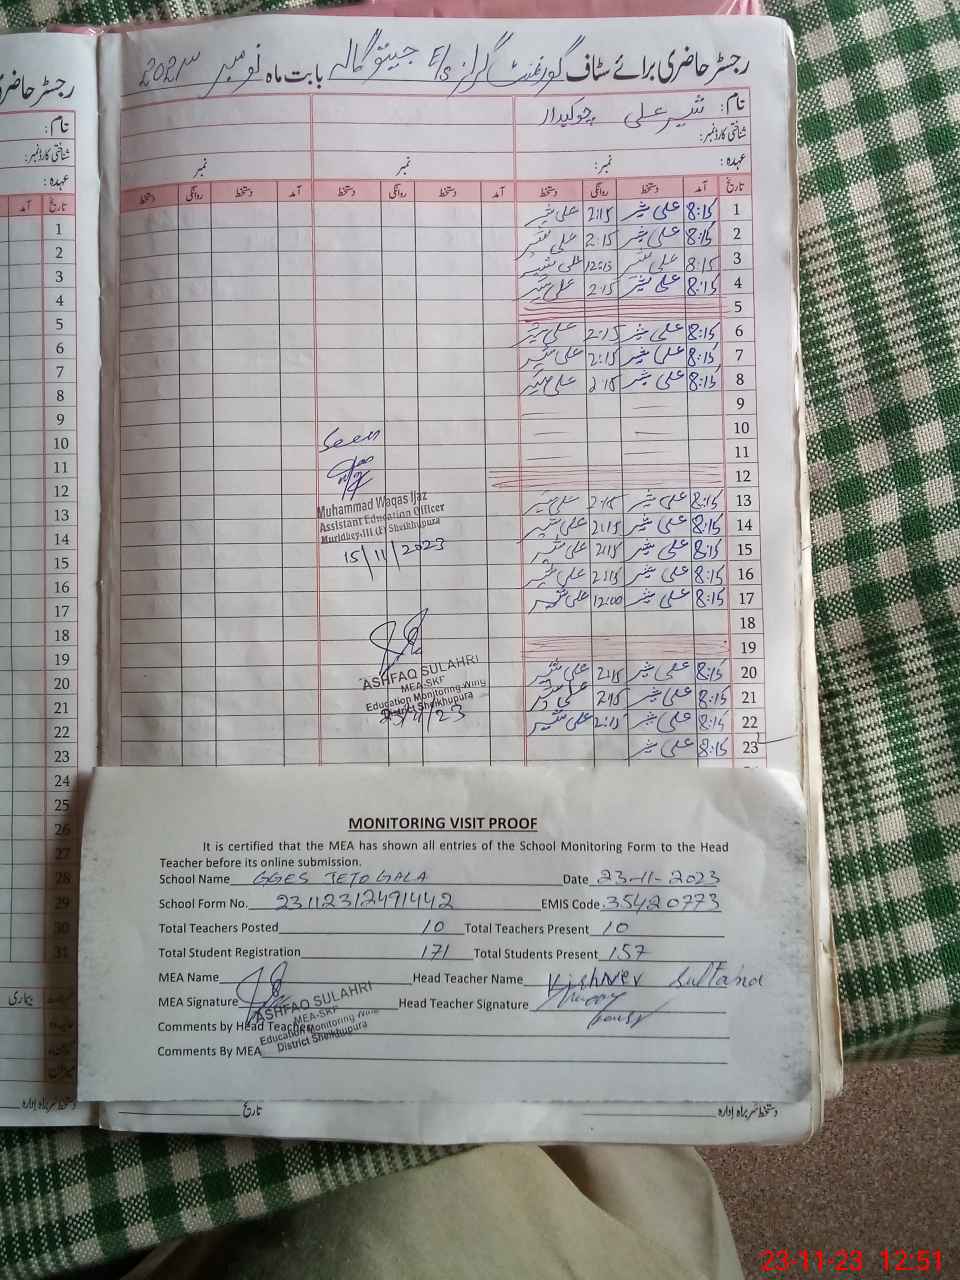 رجسٹر حاضری برائے سٹاف گورنمنٹ گرلز E/S جیٹو گالہ بابت ماہ نومبر 2023
نام: شیر علی چوکیدار
شناختی کارڈ نمبر:
عہدہ: نمبر: نمبر نمبر
تاریخ آمد دستخط روانگی دستخط آمد دستخط روانگی دستخط آمد دستخط روانگی دستخط
1 8:15 علی شیر 2:15 علی شیر
2 8:15 علی شیر 2:15 علی شیر
3 8:15 علی شیر 12:15 علی شیر
4 8:15 علی شیر 2:15 علی شیر
5
6 8:15 علی شیر 2:15 علی شیر
7 8:15 علی شیر 2:15 علی شیر
8 8:15 علی شیر 2:15 علی شیر
9
10
11
12
13 8:15 علی شیر 2:15 علی شیر
14 8:15 علی شیر 2:15 علی شیر
15 8:15 علی شیر 2:15 علی شیر
16 8:15 علی شیر 2:15 علی شیر
17 8:15 علی شیر 12:00 علی شیر
18
19
20 8:15 علی شیر 2:15 علی شیر
21 8:15 علی شیر 2:15 علی شیر
22 8:15 علی شیر 2:15 علی شیر
23 8:15 علی شیر
Seen
Muhammad Waqas Ijaz
Assistant Education Officer
Muridkey-III (F) Sheikhupura
15/11/2023
ASHFAQ SULAHRI
MEA-SKF
Education Monitoring Wing
District Sheikhupura
23/11/23
MONITORING VISIT PROOF
It is certified that the MEA has shown all entries of the School Monitoring Form to the Head
Teacher before its online submission.
School Name GGES JETO GALA Date 23-11-2023
School Form No. 23112312491442 EMIS Code 35420773
Total Teachers Posted 10 Total Teachers Present 10
Total Student Registration 171 Total Students Present 157
MEA Name Head Teacher Name Kishwer Sultana
MEA Signature Head Teacher Signature
ASHFAQ SULAHRI
MEA-SKF
Education Monitoring Wing
District Sheikhupura
Comments by Head Teacher
Comments By MEA
دستخط سربراہ ادارہ تاریخ
رجسٹر حاضری
نام:
شناختی کارڈ نمبر:
عہدہ:
تاریخ آمد
1
2
3
4
5
6
7
8
9
10
11
12
13
14
15
16
17
18
19
20
21
22
23
24
25
26
27
28
29
30
31
بیماری
دستخط سربراہ ادارہ
23-11-23 12:51